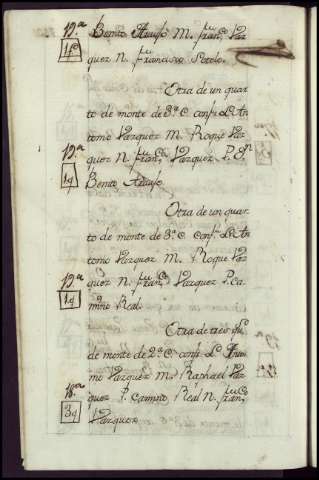 19.ª Benito Araujo M. fran.co Vaz
1f.o
quez N. francisco Sotelo.
Otra de un quar
to de monte de 3.ª C. conf. L. An
tonio Vazquez M. Roque Vaz
19.ª quez N. fran.co Vazquez P. D.n
1q Benito Araujo.
Otra de un quar
to de monte de 3.ª C. conf. L. An
tonio Vazquez M. Roque Vaz
19.ª quez N. fran.co Vazquez P. Ca
1q mino Real.
Otra de tres q.s
de monte de 2.ª C. conf. L. Anto
nio Vazquez M. Raphael Vaz
18.ª quez P. Camino Real N. fran.co
3q Vazquez